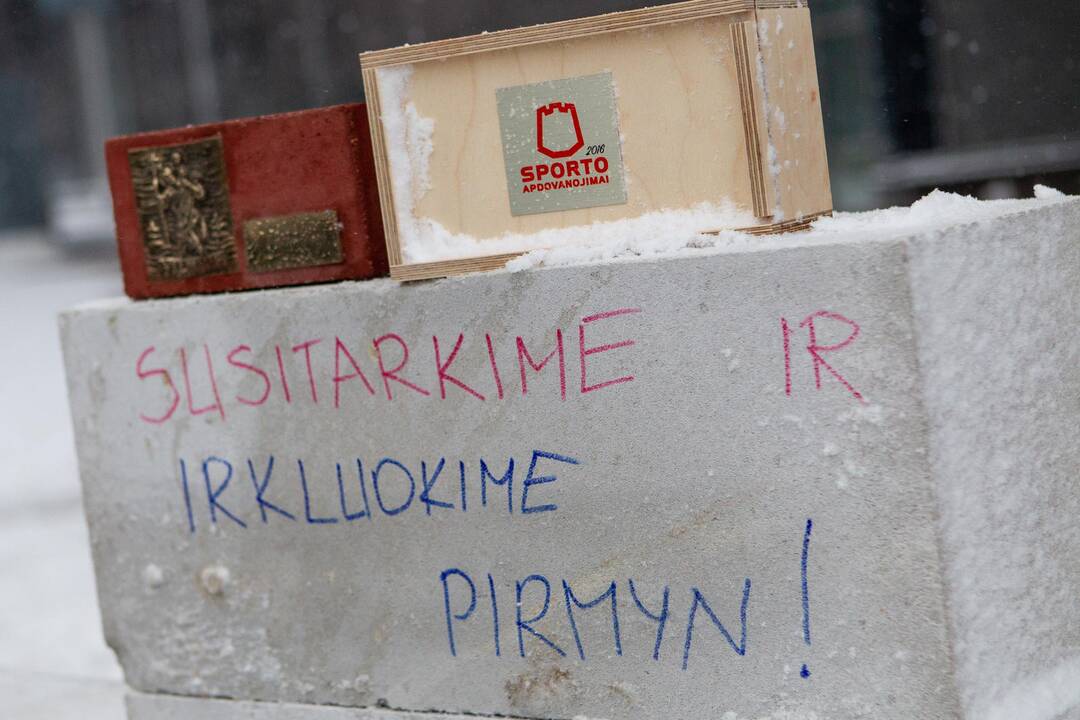 2016
SPORTO
APDOVANOJIMAI
SUSITARKIME IR
IRKLUOKIME
PIRMYN!